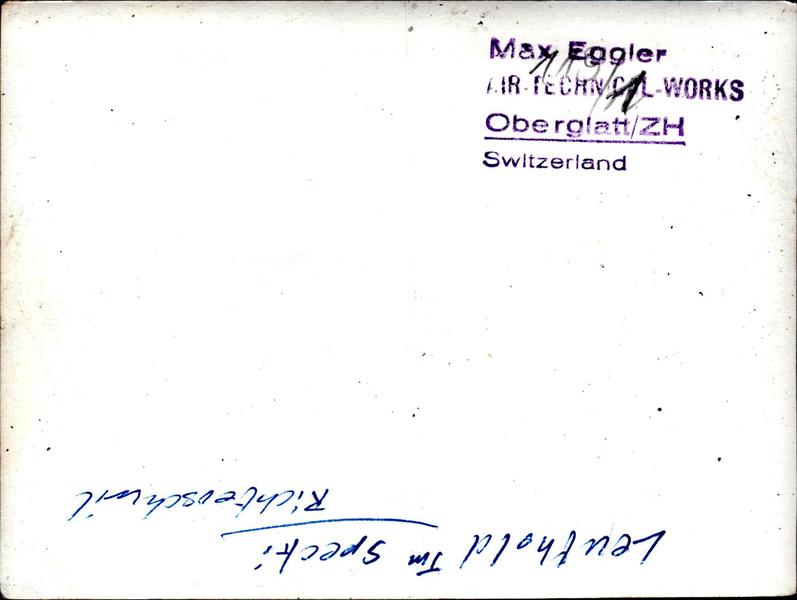 Max Eggler
AIR-TECHNICAL-WORKS
Oberglatt/ZH
Switzerland
Leuthold Im Specki
Richterschwil